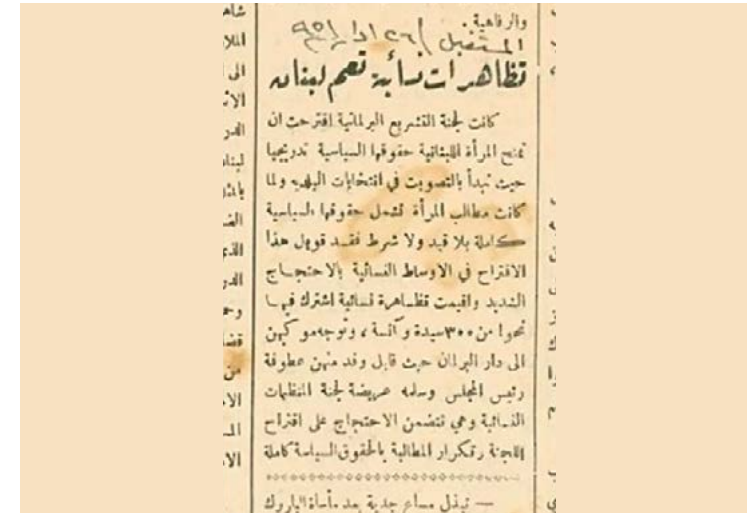 والرفاهية.
المستقبل / ٢٦ اذار ٩٥١
تظاهرات نسائية تعم لبنان
كانت لجنة التشريع البرلمانية اقترحت ان
تمنح المرأة اللبنانية حقوقها السياسية تدريجيا
حيث تبدأ بالتصويت في انتخابات البلديه ولما
كانت مطالب المرأة تشمل حقوقها السياسية
كاملة بلا قيد ولا شرط فقد قوبل هذا
الاقتراح في الاوساط النسائية بالاحتجاج
الشديد واقيمت تظاهرة نسائية اشترك فيها
نحوا من ٣٠٠ سيدة وآنسة ، وتوجه موكبهن
الى دار البرلمان حيث قابل وفد منهن عطوفة
رئيس المجلس وسلمه عريضة لجنة المنظمات
النسائية وهي تتضمن الاحتجاج على اقتراح
اللجنة وتكرار المطالبة بالحقوق السياسة كاملة
— تبذل مساع جدية بعد مأساة الباروك